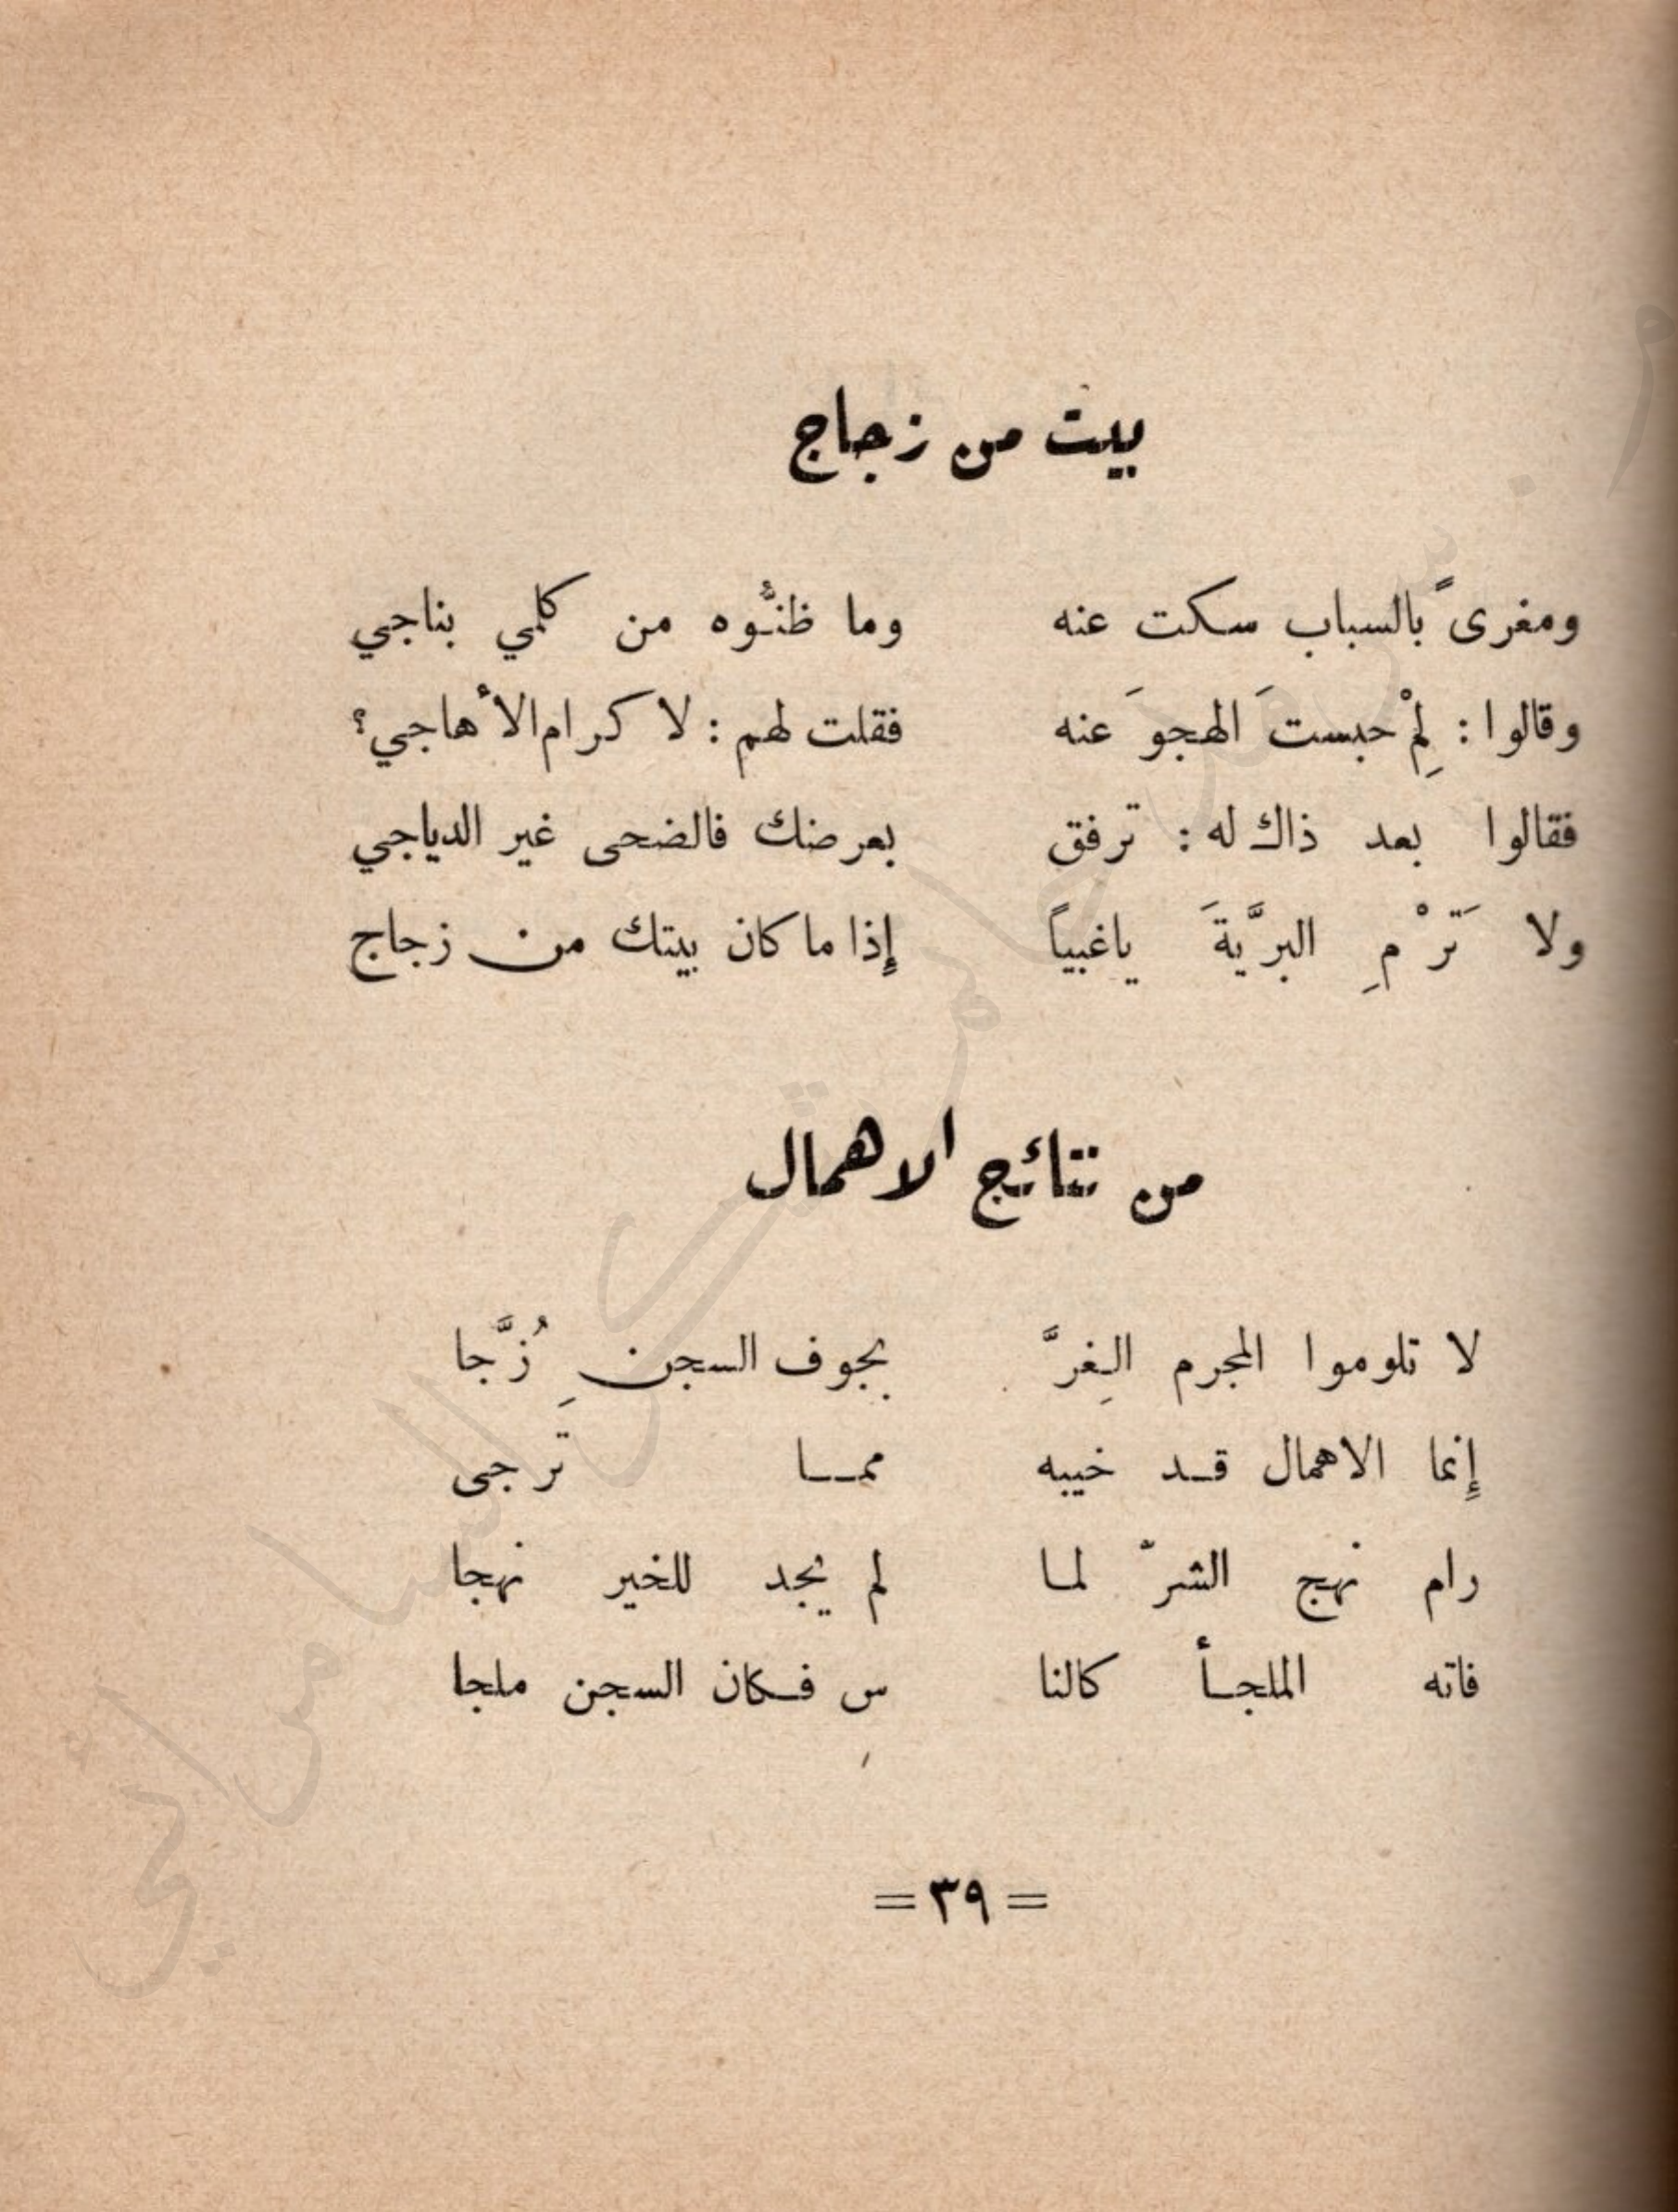 بيت من زجاج
ومغرىً بالسباب سكت عنه    وما ظنُّوه من كلمي بناجي
وقالوا : لِمْ حبستَ الهجوَ عنه    فقلت لهم : لا كرام الأهاجي؟
فقالوا بعد ذاك له : ترفق    بعرضك فالضحى غير الدياجي
ولا تَرْمِ البرَّيةَ ياغبياً    إِذا ما كان بيتك من زجاج
من نتائج الاهمال
لا تلوموا المجرم الغِرَّ    بجوف السجنِ زُجَّا
إِنما الاهمال قد خيبه    ممـــا تَرجى
رام نهج الشرّ لما    لم يجد للخير نهجا
فاته الملجأ كالنا    س فكان السجن ملجا
= ٣٩ =